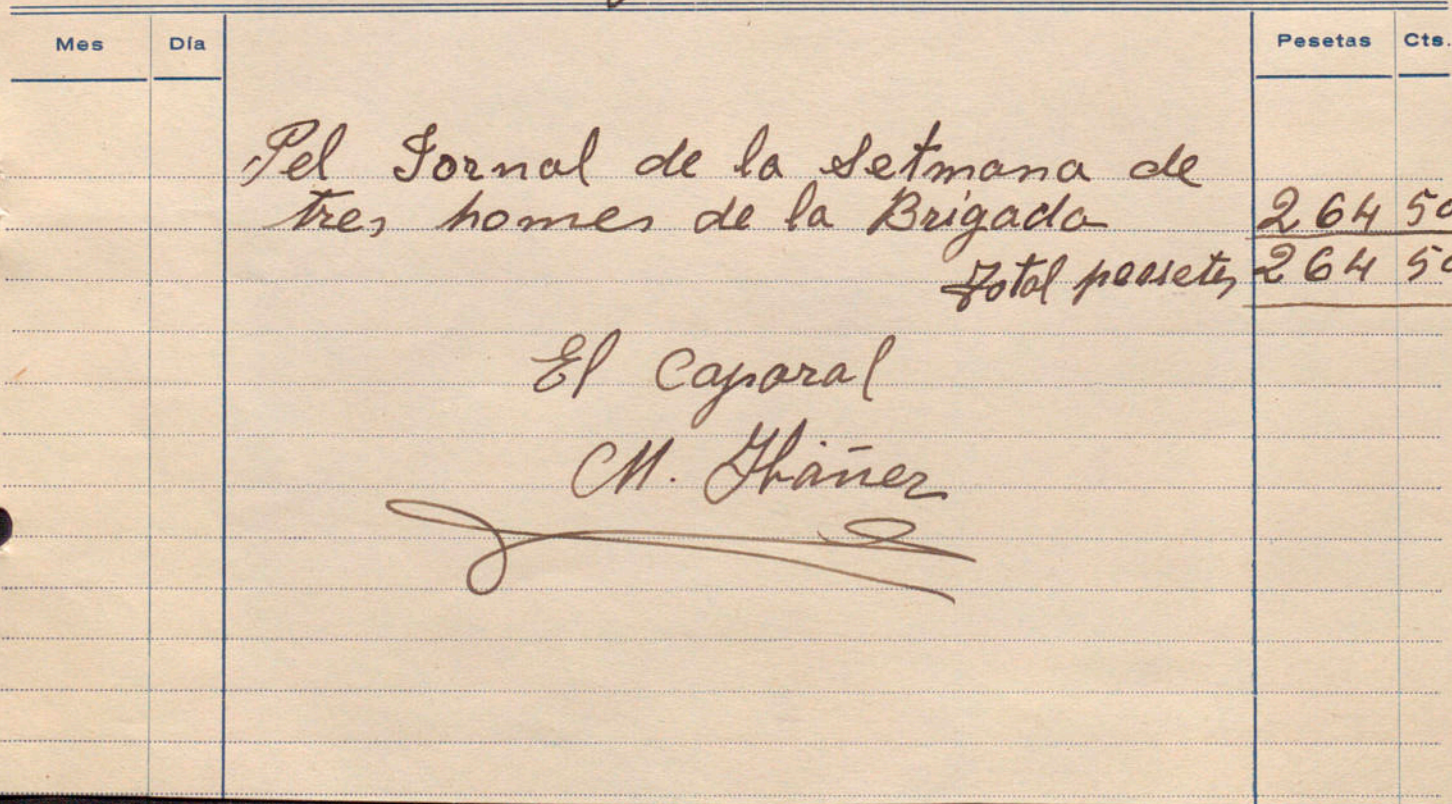 Mes Día Pesetas Cts.
Pel Jornal de la Setmana de
tres homes de la Brigada 264 50
Total pessetes 264 50
El Caporal
M. Ibáñez